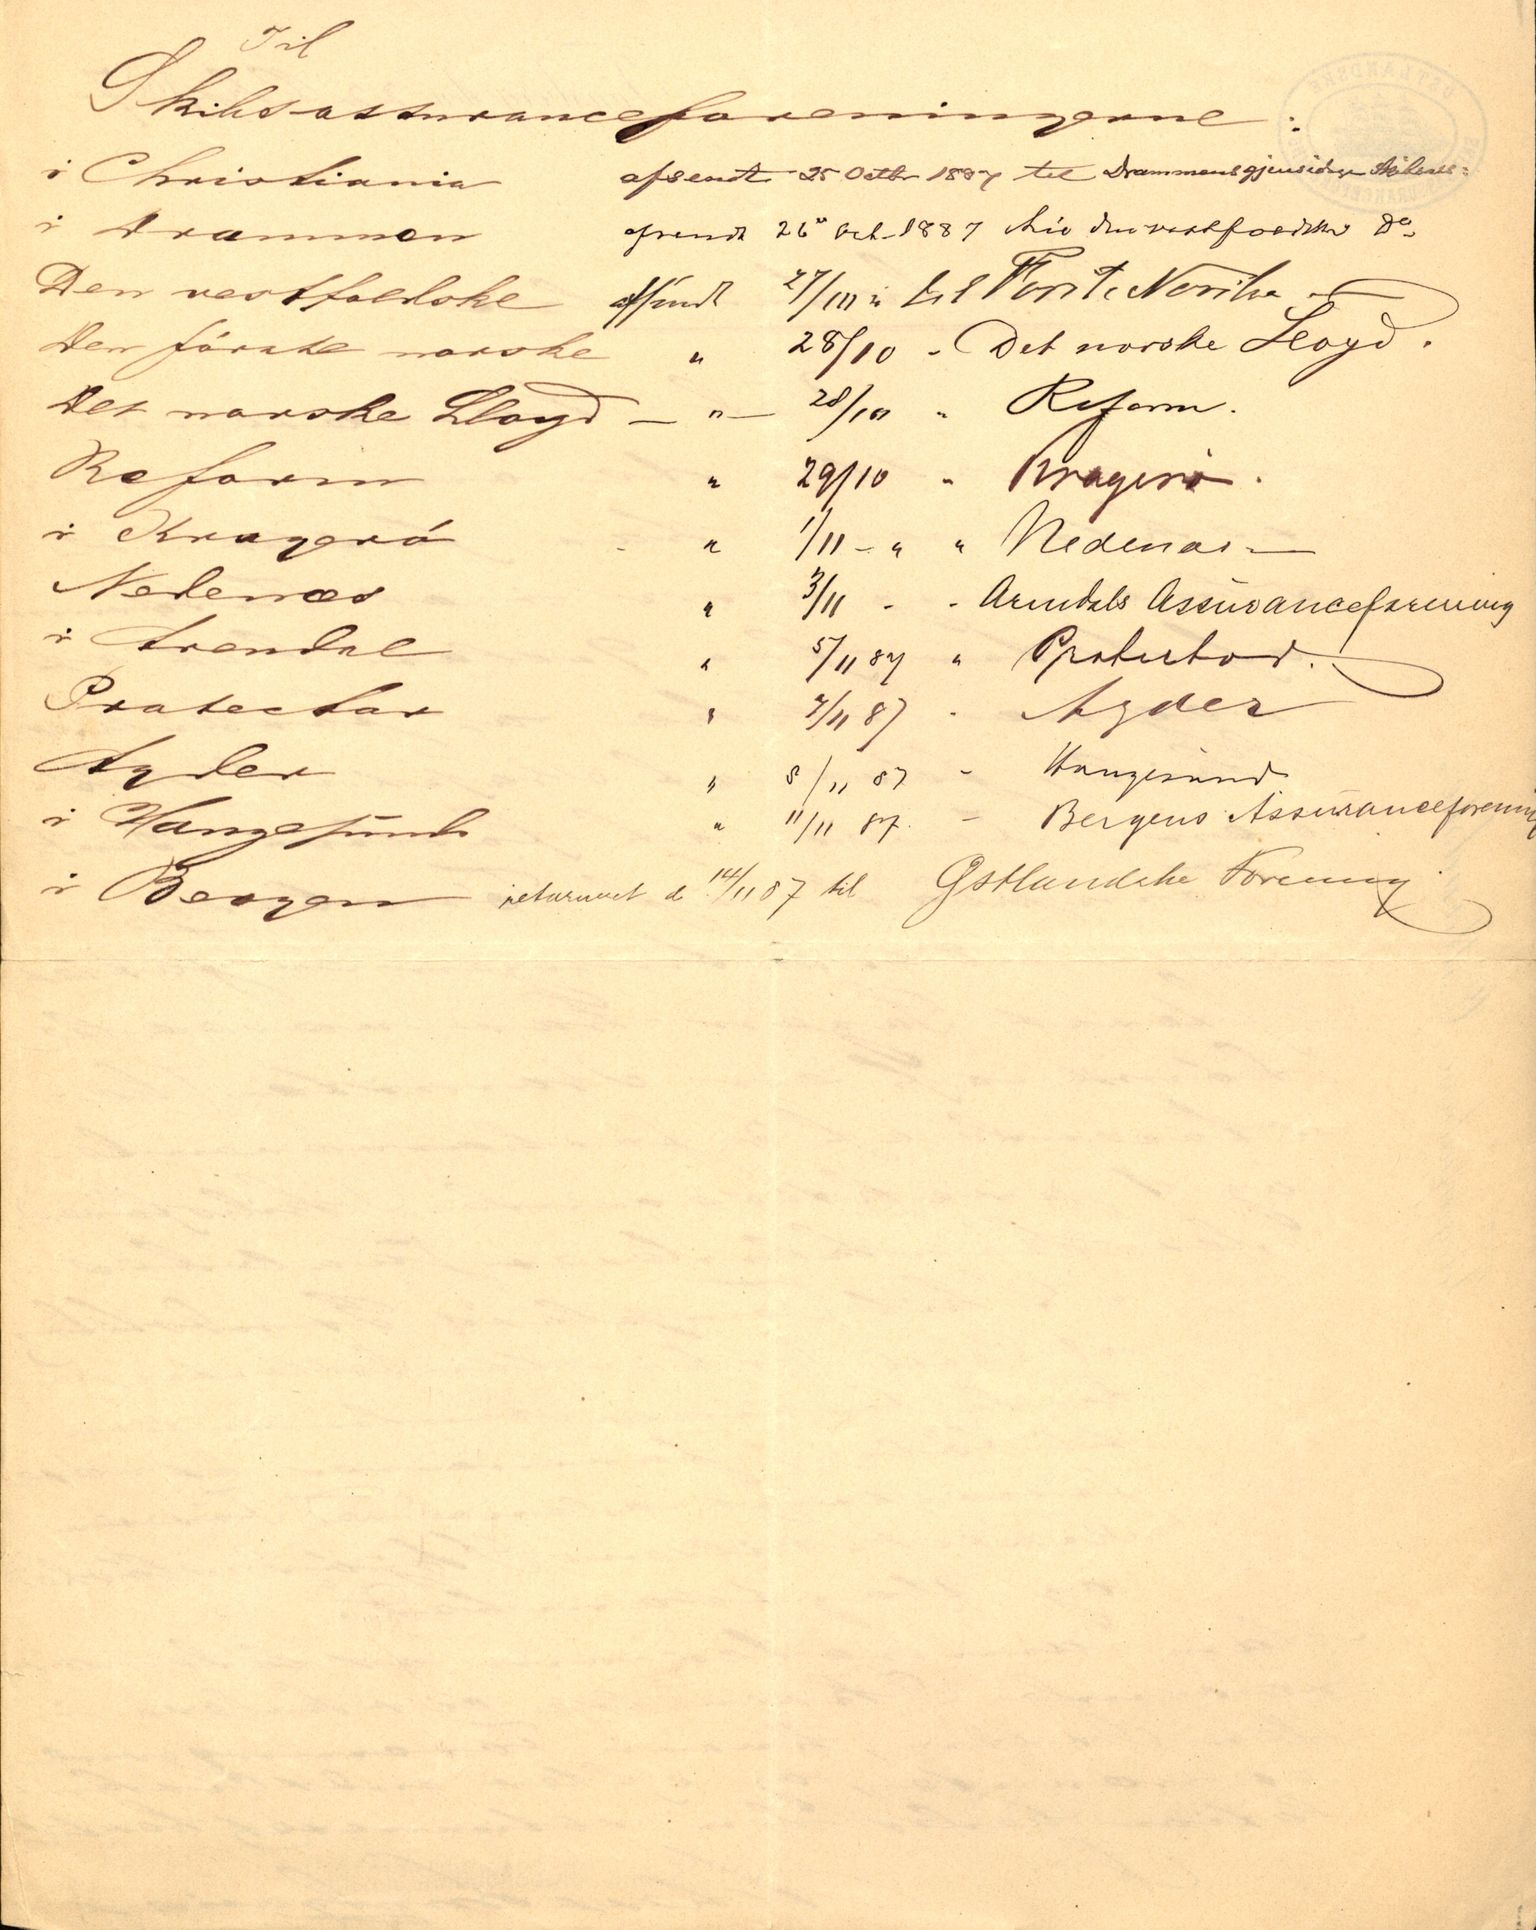 Til
Skibsassuranceforeningerne :
i Christiania afsendt 25 Octbr 1887 til Drammens gjensidige
i Drammen afsendt 26 Oct. 1887 den vestfoldske Do
Den vestfoldske afsendt 27/10 " til Første Norske
Den første norske " 28/10 - Det norske Lloyd .
Det norske Lloyd — " — 28/10 " Reform .
Reform " 29/10 " Kragerø .
i Kragerø " 1/11 - " " Nedenæs —
Nedenæs " 3/11 - - Arendals Assuranceforening
i Arendal " 5/11 87 " Protector .
Protector " 7/11 87 - Agder
Agder " 8/11 87 - Haugesund
i Haugesund " 11/11 87. - Bergens Assuranceforening
i Bergen returneret d 14/11 87 til Østlandske Forening